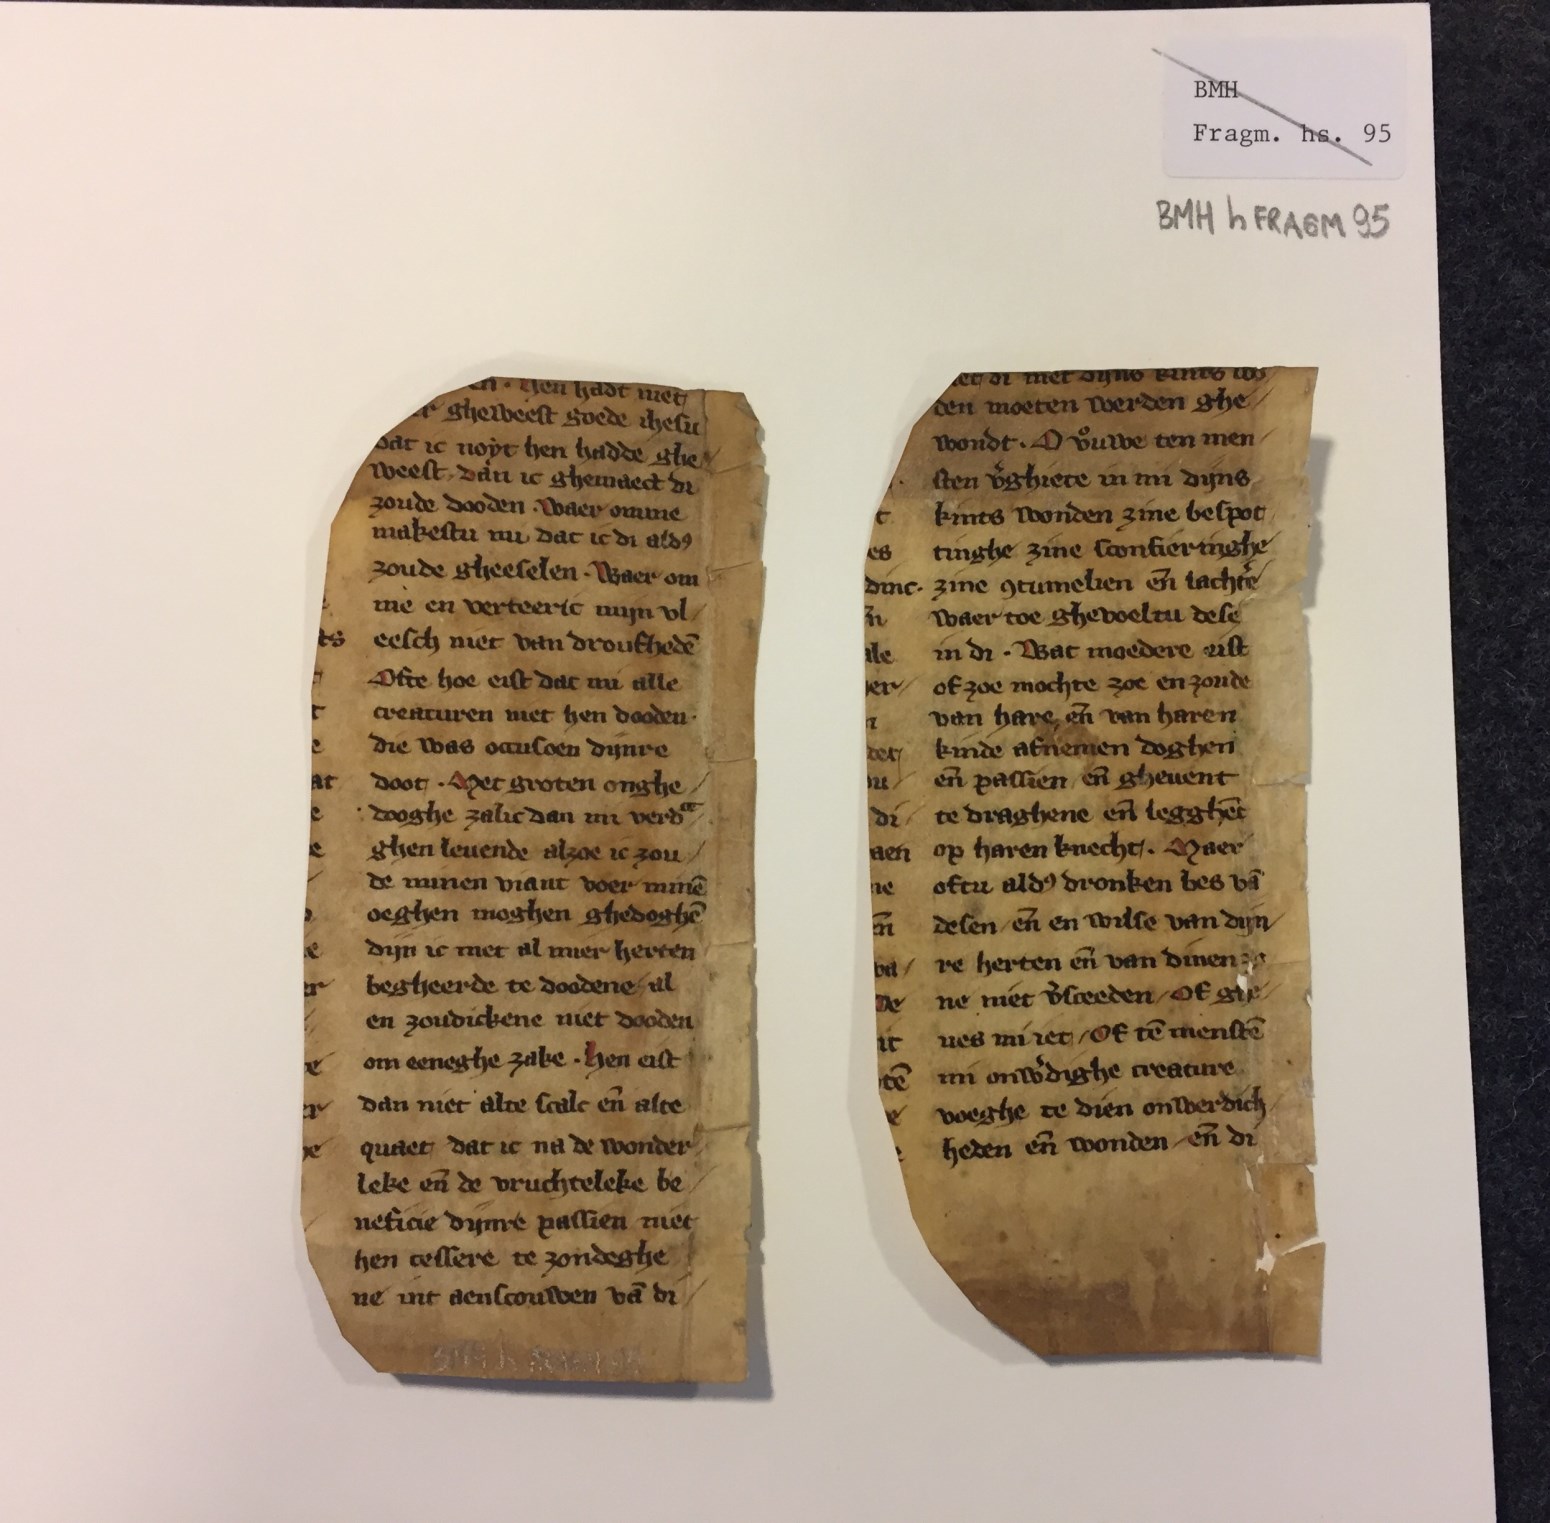 BMH
Fragm. hs. 95
BMH h FRAGM 95
en · Hen hadt niet
gheweest goede ihesu
dat ic noyt hen hadde ghe
weest, dan ic ghemaect di
zoude dooden. Waer omme
makestu nu dat ic di aldꝰ
zoude gheeselen. Waer om
me en verteeric mijn vl
eesch niet van droufhedē
Ofte hoe eist dat mi alle
creaturen niet hen dooden·
die was occusoen dijnre
doot. Met groten onghe
dooghe zalic dan mi verdᵃᵉ
ghen leuende alzoe ic zou
de minen viant voer minē
oeghen moghen ghedoghē
dijn ic met al mier herten
begheerde te doodene, al
en zoudickene niet dooden
om eeneghe zake. Hen eist
dan niet alte scalc eñ alte
quaet dat ic na de wonder
leke eñ de vruchteleke be
neficie dijnre passien niet
hen cessere te zondeghe
ne int aenscouwen vā di
ts
t
e
at
e
e
e
er
e
er
e
et di met dijns kints wō
den moeten werden ghe
wondt. O vͦuwe ten men
sten v̓ghiete in mi dijns
kints wonden zine bespot
tinghe zine sconfieringhe
zine ꝯtumelien eñ lachtʾē
waer toe ghevoeltu dese
in di. Wat moedere eist
of zoe mochte zoe en zoude
van hare, eñ van haren
kinde afnemen doghen
eñ passien eñ gheuent
te draghene eñ legghēt
op haren knecht. Maer
oftu aldꝰ dronken bes vā
desen eñ en wilse van dijn
re herten eñ van dinen
ne niet v̓sceeden, Of ghe
ues mi iet, Of tē menstē
mi onw̓dighe creature
voeghe te dien onwerdich
heden eñ wonden eñ di
t
es
dinc.
ale
er
di
aen
ne
eñ
it
tē